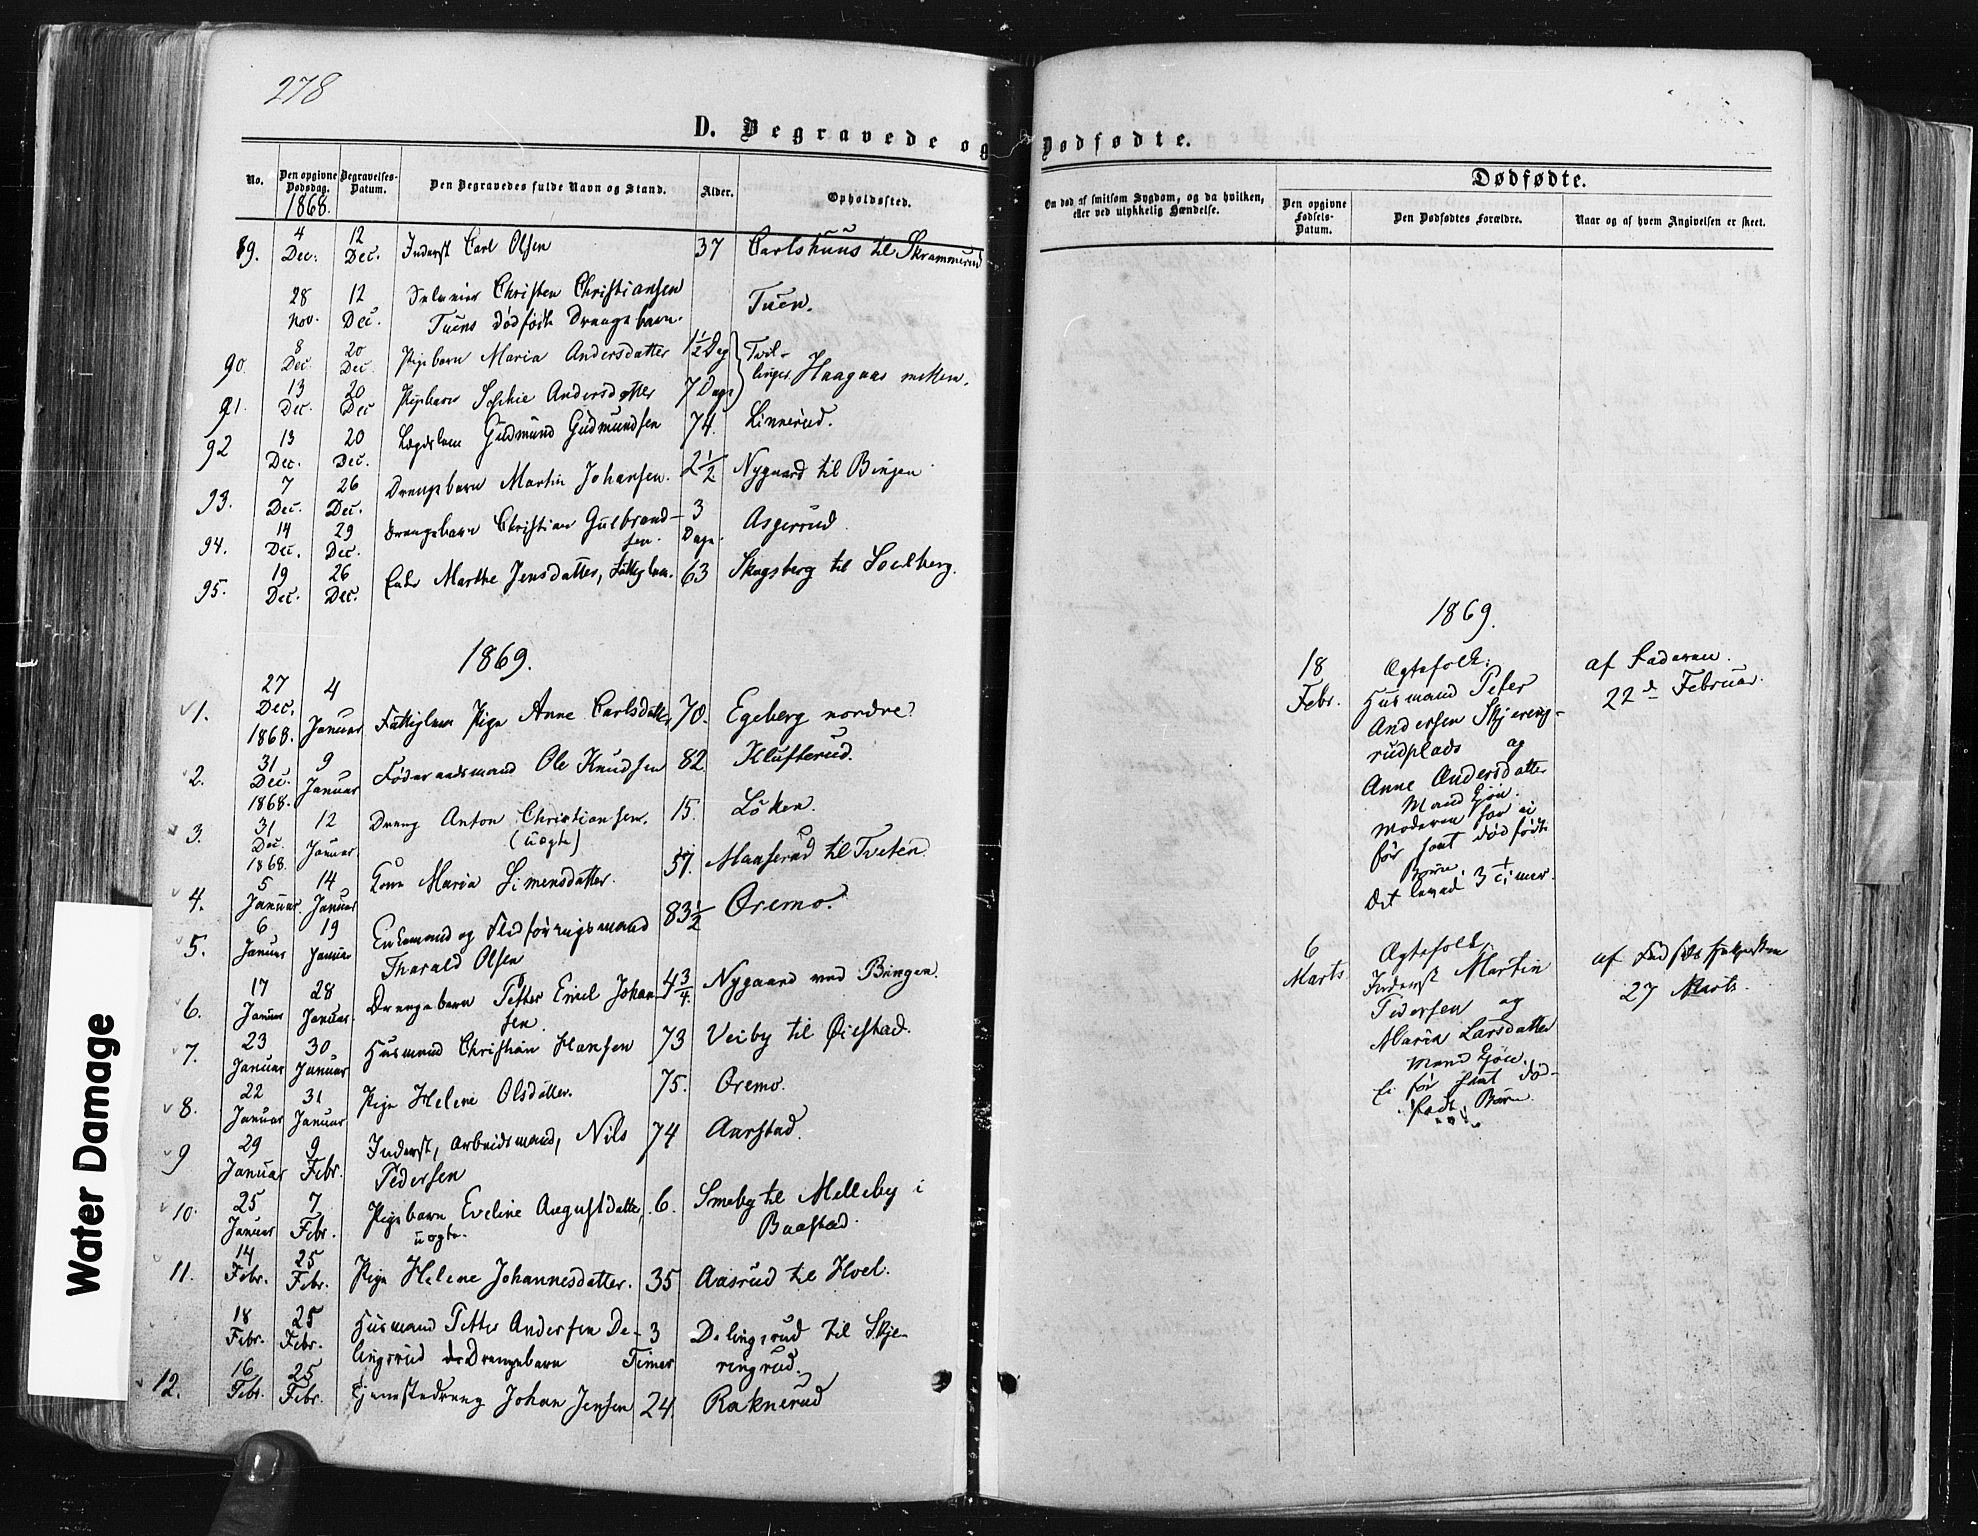 278
D. Begravede og Dødfødte.
No. Den opgivne Dødsdag. Begravelses-Datum. Den Begravedes fulde Navn og Stand. Alder. Opholdssted.
1868.
89. 4 Dec. 12 Dec. Inderst Carl Olsen 37 Carlshuus til Skrammerud
28 Nov. 12 Dec. Christen Christiansen Tuen.
Tuens dødfødte Drengebarn.
90. 8 Dec. 20 Dec. Pigebarn Maria Andersdatter 1½ Dag Tvil-
91. 13 Dec. 20 Dec. Pigebarn Sophie Andersdatter 7 Dage linger Haagaas
92 13 Dec. 20 Dec. Lægdslem Gudmund Gudmundsen 74. Linnerud.
93. 7 Dec. 26 Dec. Drengebarn Martin Johansen. 2½ Nygaard til Bingen
94. 14 Dec. 29 Dec. Drengebarn Christian Gulbrand- 3 Dage. Asgerrud.
sen.
95. 19 Dec. 26 Dec. Enke Marthe Jensdatter, Fattiglem. 63 Skogsberg til Soelberg.
1869.
1. 27 Dec. 1868. 4 Januar Fattiglem Pige Anne Carlsdatter 70. Egeberg nordre
2. 31 Dec. 1868. 9 Januar Føderaadsmand Ole Knudsen 82. Klufterud.
3. 31 Dec. 1868. 12 Januar Dreng Anton Christiansen. 15. Löken.
(uægte)
4. 5 Januar. 14 Januar Kone Maria Simensdatter. 57. Maaserud til Tveten.
5. 6 Januar 19 Januar Enkemand og Flodføringsmand 83½ Oremo.
Tharald Olsen
6. 17 Januar 28 Januar. Drengebarn Petter Emil Johan 4¾ Nygaard ved Bingen.
sen.
7. 23 Januar 30 Januar Husmand Christian Hansen 73 Veiby til Øiestad.
8. 22 Januar 31 Januar Pige Helene Olsdatter. 75. Oremo.
9 29 Januar 9 Febr. Inderst, Arbeidsmand, Nils 74 Aarstad.
Pedersen
10. 25 Januar 7 Febr. Pigebarn Eveline Augustdatter, 6. Smeby til Melleby i
uægte. Baastad.
11. 14 Febr. 25 Febr. Pige Helene Johannesdatter. 35 Aasrud til Hoel.
18 Febr. 25 Febr. Husmand Petter Andersen De- 3 Delingsrud til Skje-
lingsrud ds Drengebarn Timer ringrud.
12. 16 Febr. 25 Febr. Tjenestedreng Johan Jensen 24. Raknerud
Om død af smitsom Sygdom, og da hvilken,
eller ved ulykkelig Hændelse.
Dødfødte.
Den opgivne Fødsels-Datum. Den Dødfødtes Forældre. Naar og af hvem Angivelsen er skeet.
1869.
18 Febr. Ægtefolk: af Faderen
Husmand Peter 22d Februar.
Andersen Skjering-
rudplads og
Anne Andersdatter
Mand Ejön.
Moderen har ei
før havt dödfødte
Börn.
Det levede 3 Timer.
6 Marts Ægtefolk af Fødselshjelpersken
Inderst Martin 27 Marts.
Pedersen og
Maria Larsdatter
Mand Ejön.
Ei før havt død-
fødte Börn.
Water Damage